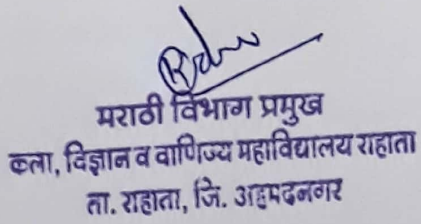 मराठी विभाग प्रमुख
कला, विज्ञान व वाणिज्य महाविद्यालय राहाता
ता. राहाता, जि. अहमदनगर